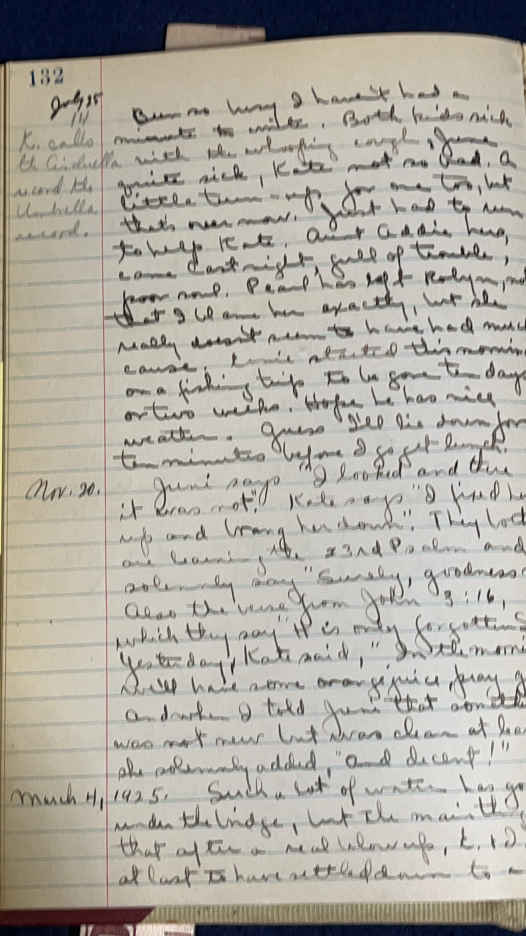 132
July 25
Been so busy I haven't had a
K. calls minute to write. Both kids sick
the Cinderella with the whooping cough, June
record the quite sick, Kate not so bad. A
Umbrella little turn-up for me too, but
record. that's over now. Just had to run
to help Kate. Aunt Addie here,
came last night, full of trouble,
poor soul. Pearl has left Robyn, not
that I blame her exactly, but she
really doesn't seem to have had much
cause. started this mornin
on a fishing trip to be gone ten days
or two weeks. Hope he has nice
weather. Guess I'll lie down for
ten minutes before I go get lunch.
Nov. 20. Juni says "I looked and there
it was not". Kate says "I fixed he
up and brang her down". They both
are learning the 23rd Psalm and
solemnly say "Surely, goodness
Also the verse from John 3:16,
which they say "it is only forgotten S
Yesterday, Kate said, "In the morni
we'll have some orange juice, pray G
and when I told Juni that somethi
was not new but was clean at lea
she solemnly added, "and decent!"
March 4, 1925. Such a lot of water has go
under the bridge, but the main thing
that after a real blow up, L. + D.
at last to have settled down to a